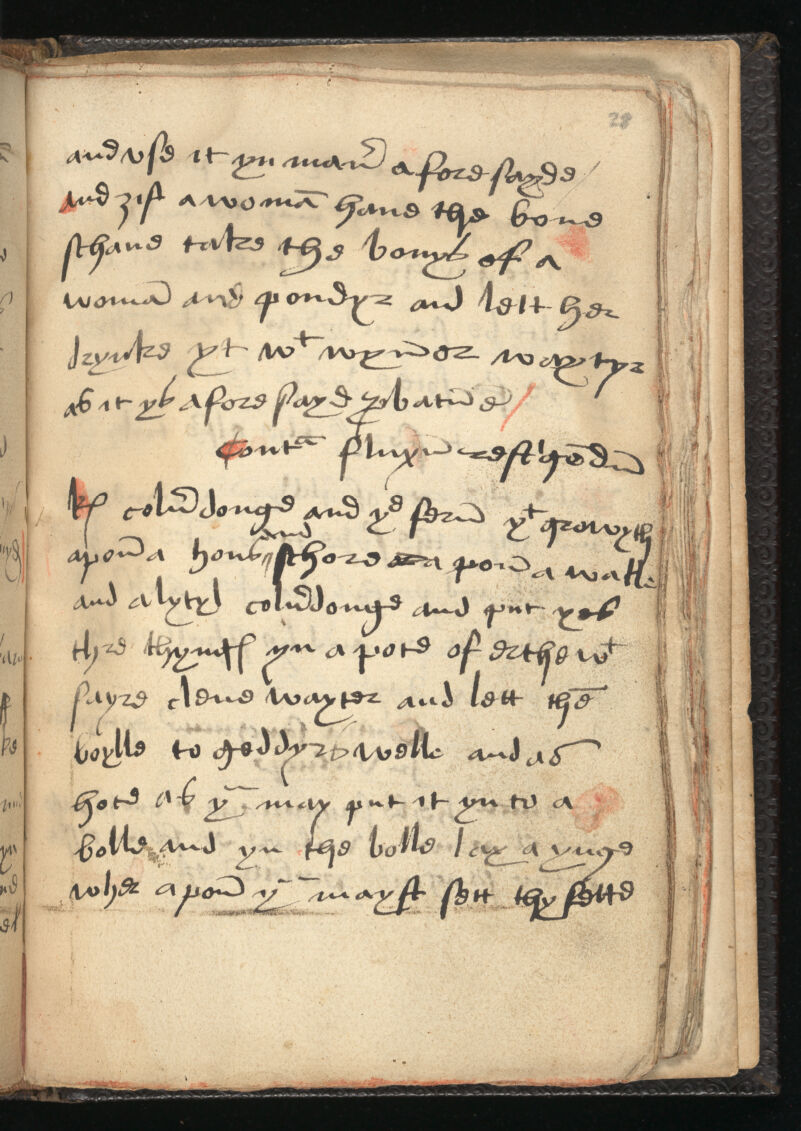 28
and vse it yn man̄ afore sayde /
and ȝif a womā haue the bone
schaue take the bonys of a
womā and pondyr and lett her
drynke yt wt wyn̄er waytyr
as it ys afore sayd ꝓbatū ē /
Conta fluxū rest'gēdū
colūdonge and ye ferū yt growyth
apon̄ a hous and schore a pon̄ a walle
and a lytyl colūdonge and put yes
thre thyngꝭ yn a pote of erthe wt
fayre clene wayter and lett thē
boylle to geddyrs welle and as
hote as yu may put it yn to a
bolle and yn the bolle lay a ynge
wher apon̄ yu mayst sett thy fette